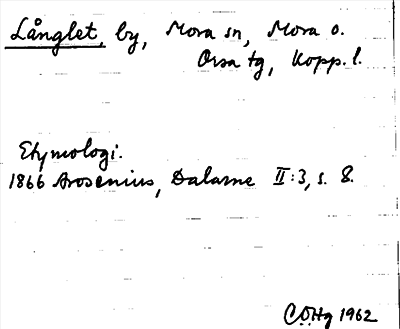 Långlet, by, Mora sn, Mora o.
Orsa tg, Kopp. l.
Etymologi.
1866 Arosenius, Dalarne II:3, s. 8.
CÖHg 1962